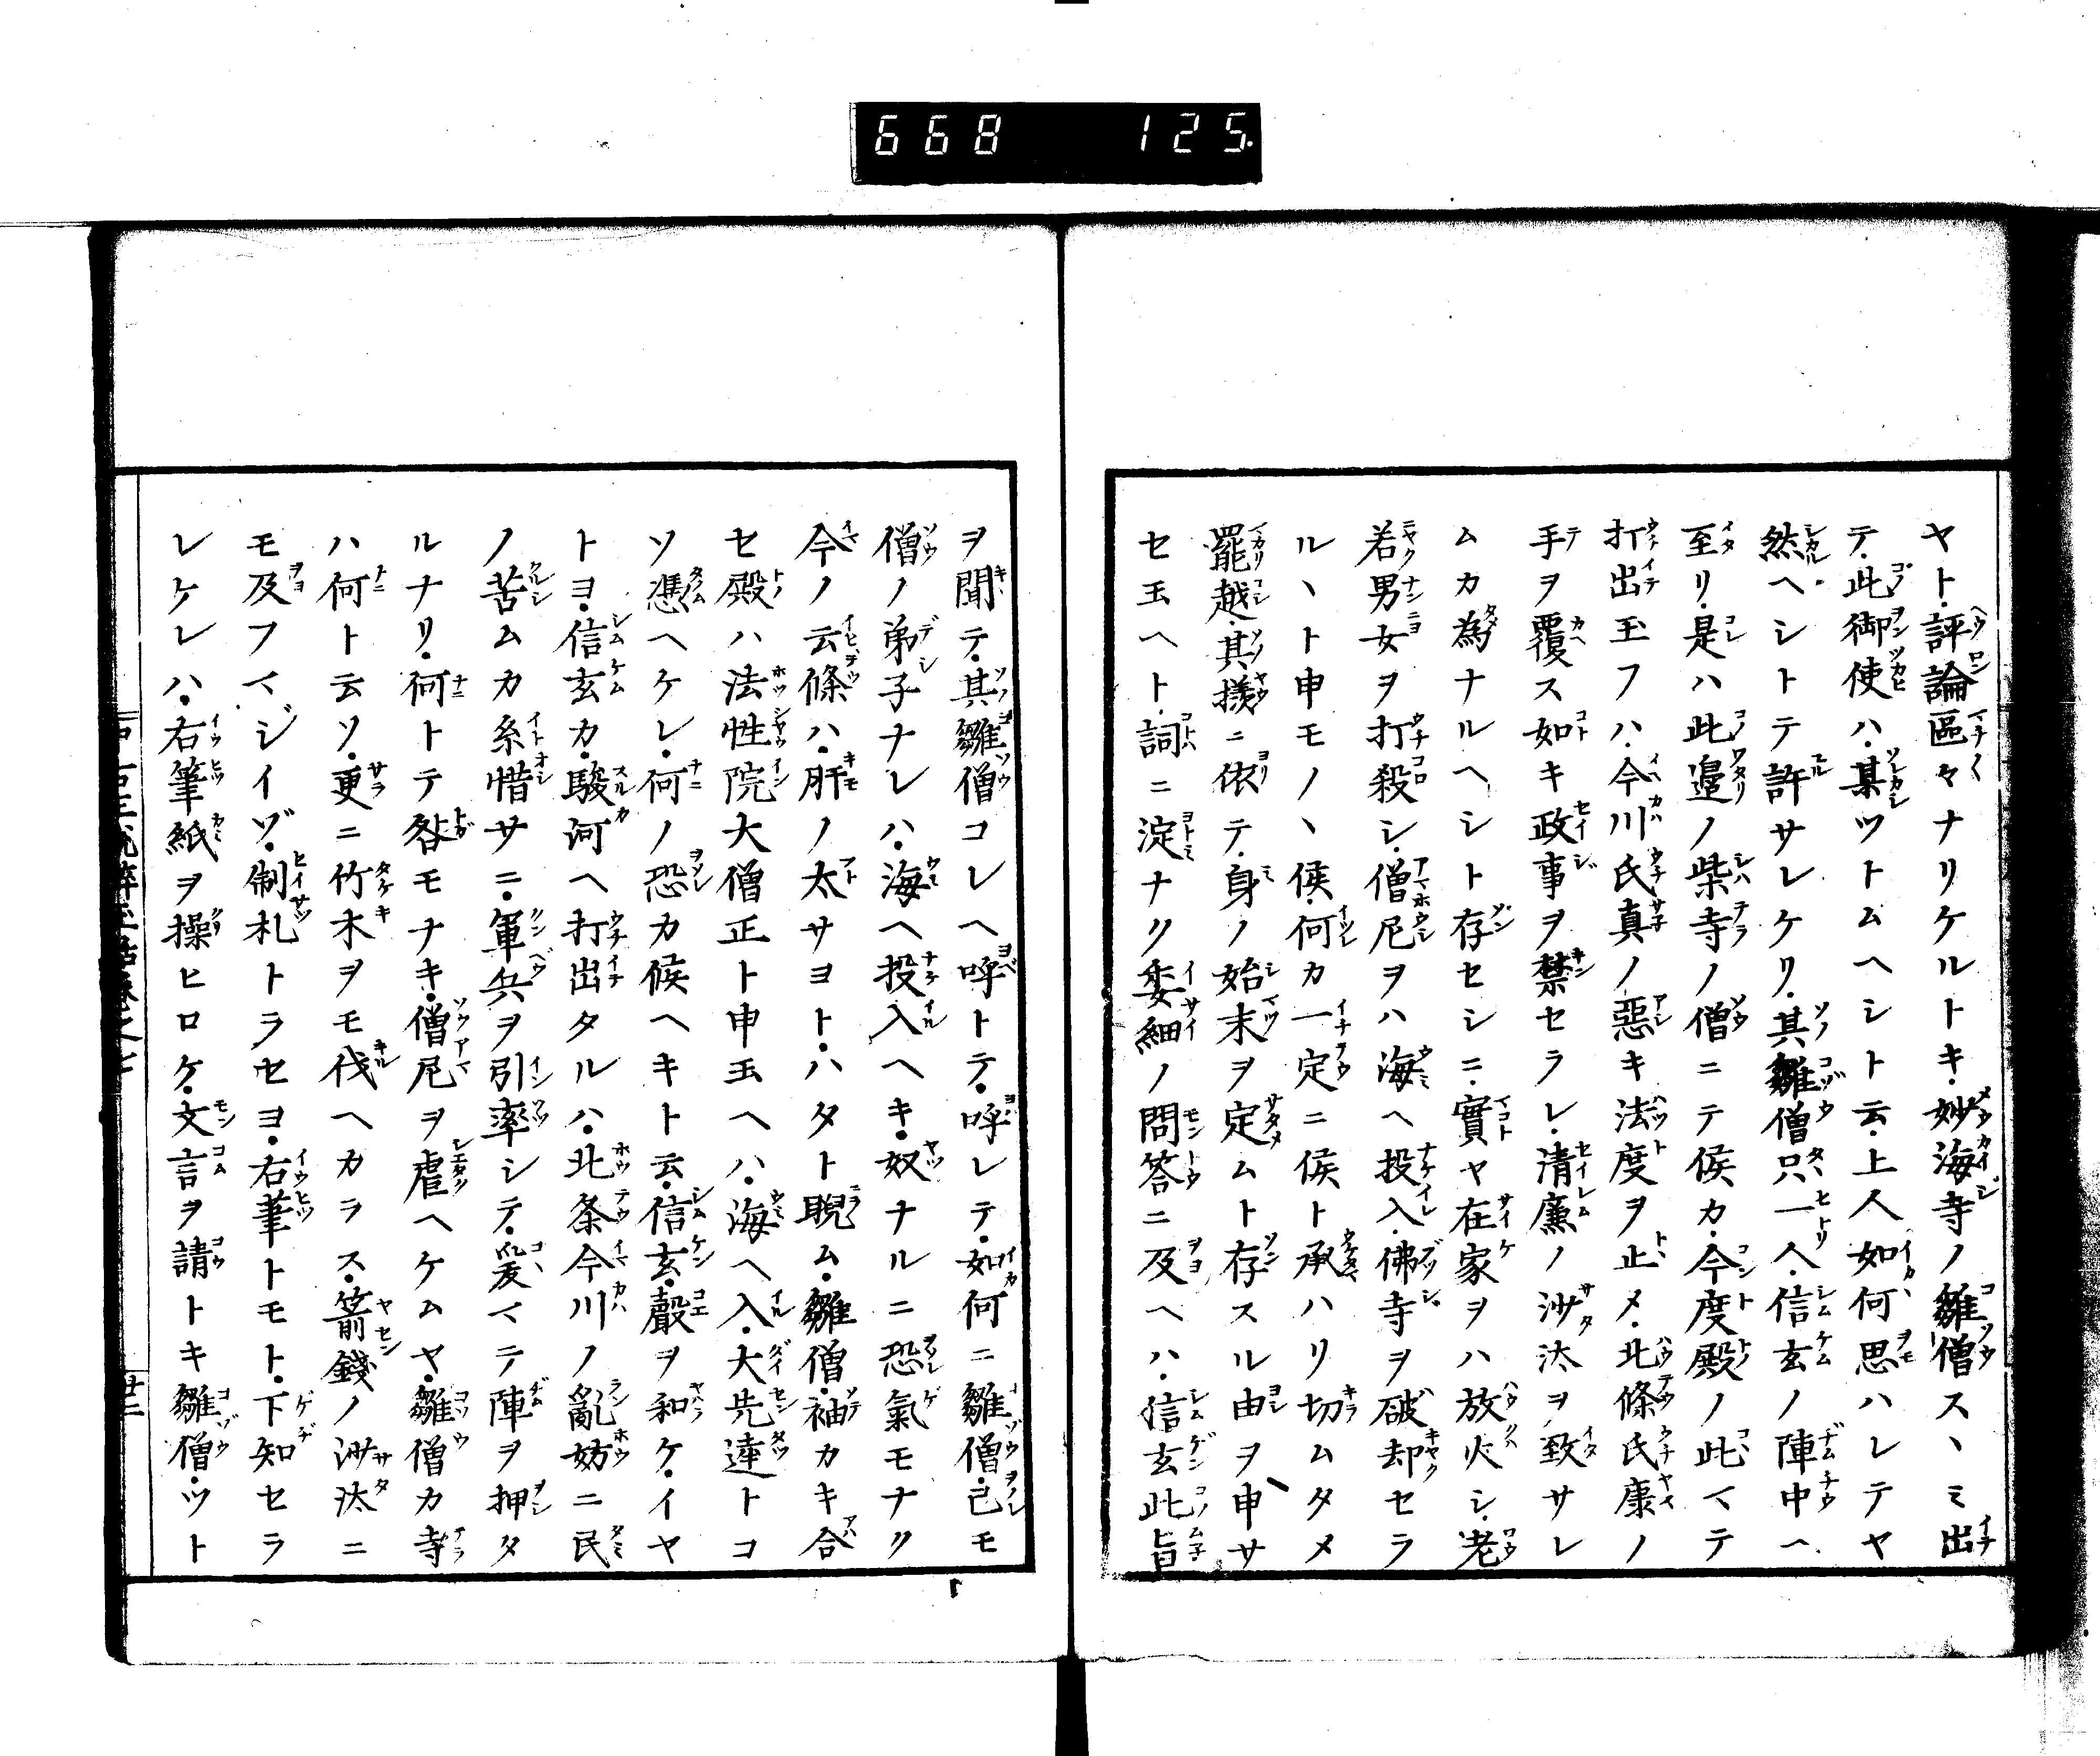 668 125.
ヤト評論區々ナリケルトキ妙海寺ノ雛僧スヽミ出
テ此御使ハ某ツトムヘシト云上人如何思ハレテヤ
然ヘシトテ許サレケリ其雛僧只一人信玄ノ陣中ヘ
至リ是ハ此邉ノ柴寺ノ僧ニテ候カ今度殿ノ此マテ
打出玉フハ今川氏真ノ惡キ法度ヲ止メ北條氏康ノ
手ヲ覆ス如キ政事ヲ禁セラレ清廉ノ沙汰ヲ致サレ
ムカ為ナルヘシト存セシニ實ヤ在家ヲハ放火シ老
若男女ヲ打殺シ僧尼ヲハ海ヘ投入佛寺ヲ破却セラ
ルヽト申モノヽ候何カ一定ニ候ト承ハリ切ムタメ
罷越其様ニ依テ身ノ始末ヲ定ムト存スル由ヲ申サ
セ玉ヘト詞ニ淀ナク委細ノ問答ニ及ヘハ信玄此旨
ヲ聞テ其雛僧コレヘ呼トテ呼レテ如何ニ雛僧己モ
僧ノ弟子ナレハ海ヘ投入ヘキ奴ナルニ恐氣モナク
今ノ云條ハ肝ノ太サヨトハタト睨ム雛僧袖カキ合
セ殿ハ法性院大僧正ト申玉ヘハ海ヘ入大先達トコ
ソ憑ヘケレ何ノ恐カ候ヘキト云信玄聲ヲ和ケイヤ
トヨ信玄カ駿河ヘ打出タルハ北条今川ノ亂妨ニ民
ノ苦ムカ糸惜サニ軍兵ヲ引率シテ爰マテ陣ヲ押タ
ルナリ何トテ咎モナキ僧尼ヲ虐ヘケムヤ雛僧カ寺
ハ何ト云ソ更ニ竹木ヲモ伐ヘカラス箭錢ノ沙汰ニ
モ及フマジイゾ制札トラセヨ右筆トモト下知セラ
レケレハ右筆紙ヲ操ヒロケ文言ヲ請トキ雛僧ツト